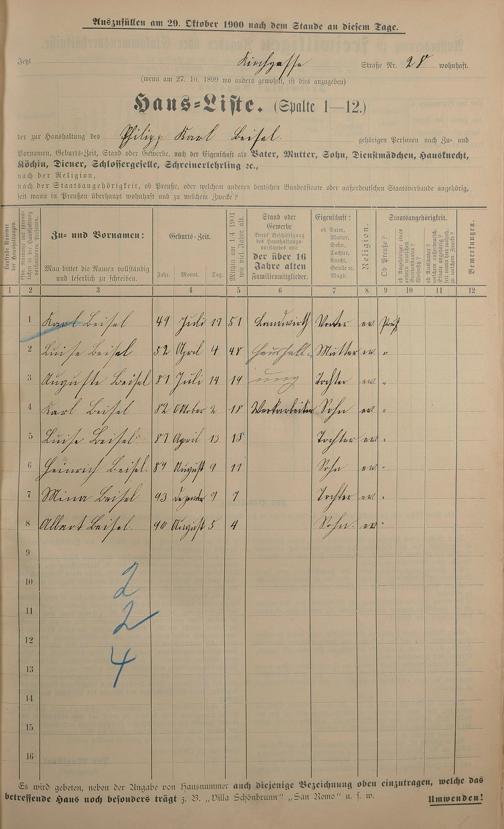 Auszufüllen am 29. Oktober 1900 nach dem Stande an diesem Tage.
Jetzt Kirchgasse Straße Nr. 28 wohnhaft.
(wenn am 27. 10. 1899 wo anders gewohnt, ist dies anzugeben)
Haus-Liste. (Spalte 1—12.)
der zur Haushaltung des Philipp Karl Beisel gehörigen Personen nach Zu- und
Vornamen, Geburts-Zeit, Stand oder Gewerbe, nach der Eigenschaft als Vater, Mutter, Sohn, Dienstmädchen, Hausknecht,
Köchin, Diener, Schlossergeselle, Schreinerlehrling ꝛc.,
nach der Religion,
nach der Staatsangehörigkeit, ob Preuße, oder welchem anderen deutschen Bundesstaate oder außerdeutschen Staatsverbande angehörig,
seit wann in Preußen überhaupt wohnhaft und zu welchem Zwecke?
Zu- und Vornamen:
Man bittet die Namen vollständig
und leserlich zu schreiben.
Geburts-Zeit.
Jahr. Monat. Tag.
Mithin am 1/4 1901
wie viel Jahre alt.
Stand oder
Gewerbe
der über 16
Jahre alten
Familienmitglieder.
Eigenschaft:
ob Vater,
Mutter,
Sohn,
Tochter,
Knecht,
Geselle ꝛc.
Magd.
Religion.
Staatsangehörigkeit.
Ob Preuße?
Bemerkungen.
1 2 3 4 5 6 7 8 9 10 11 12
1 Karl Beisel 49 Juli 17 51 Landwirth Vater ev Preuß
2 Luise Beisel 52 April 4 48 Haushalt- Mutter ev "
3 Auguste Beisel 81 Juli 14 19 ung Tochter ev "
4 Karl Beisel 82 Oktober 2 18 Sohn ev "
5 Luise Beisel 87 April 13 Tochter ev "
6 Heinrich Beisel 89 August 9 11 Sohn ev "
7 Mina Beisel 93 Dezember 9 7 Tochter ev "
8 Albert Beisel August 5 4 Sohn ev "
9
10 2
11 2
12
13 4
14
15
16
Es wird gebeten, neben der Angabe von Hausnummer auch diejenige Bezeichnung oben einzutragen, welche das
betreffende Haus noch besonders trägt z. B. „Villa Schönbrunn" „San Remo" u. s. w. Umwenden!